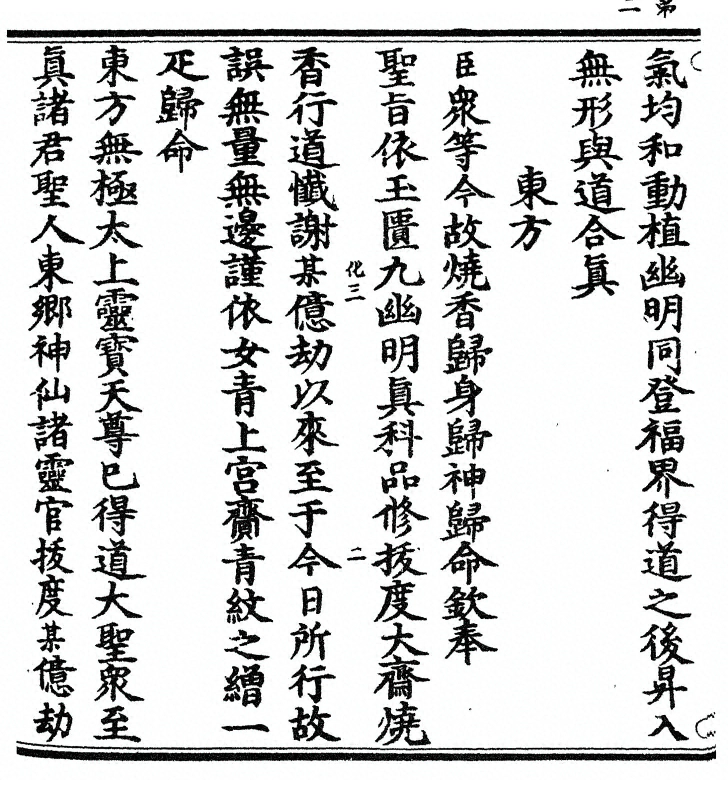 第
二
氣均和動植幽明同登福界得道之後昇入
無形與道合真
東方
臣衆等今故燒香歸身歸神歸命欽奉
聖旨依玉匱九幽明真科品修拔度大齋燒
化三
二
香行道懺謝某億劫以來至于今日所行故
誤無量無邊謹依女青上宮齎青紋之繒一
疋歸命
東方無極太上靈寶天尊已得道大聖衆至
真諸君聖人東鄉神仙諸靈官拔度某億劫